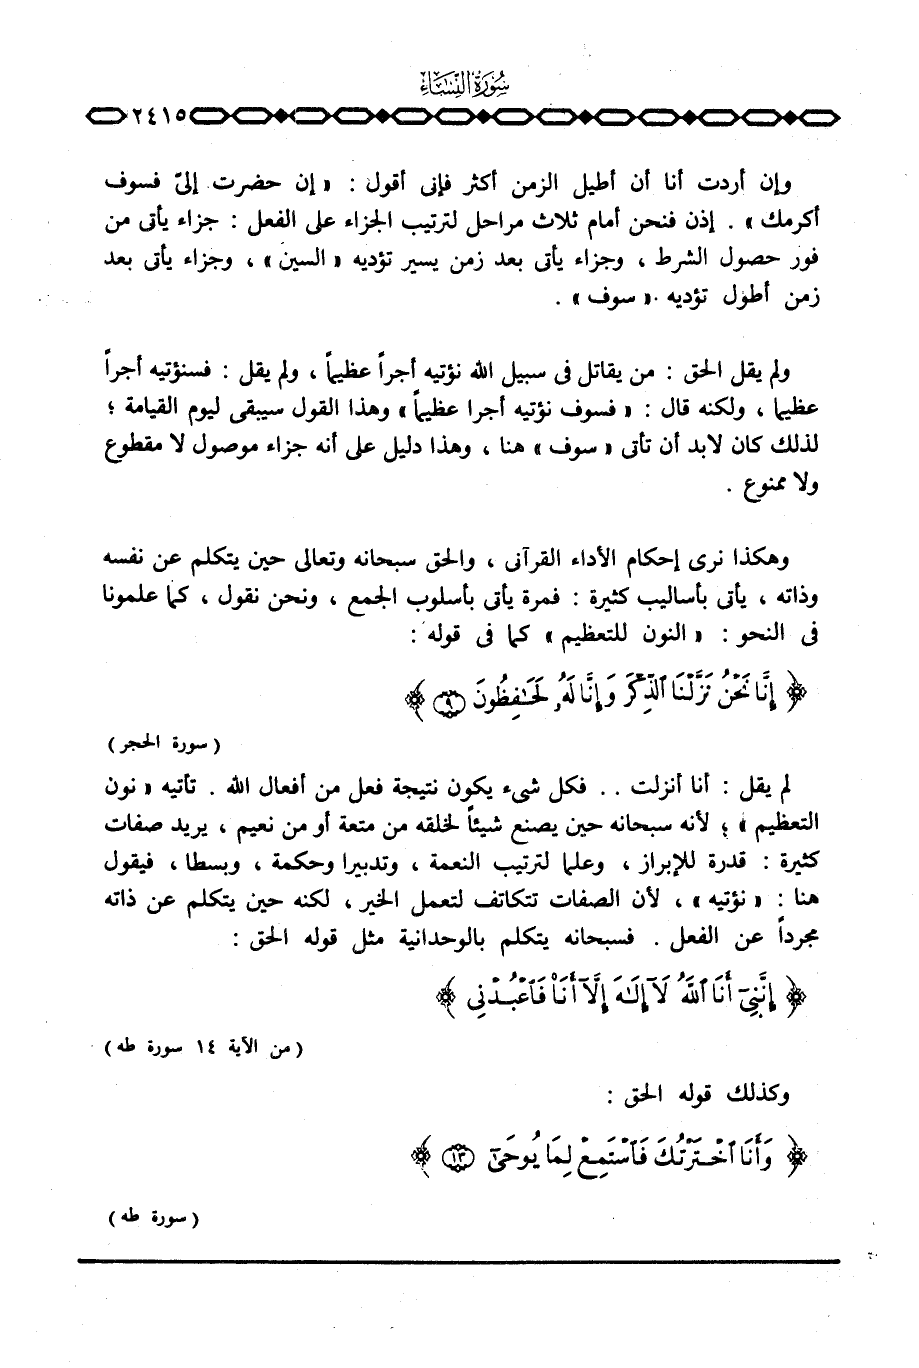 سُورَةُ النِّسَاءِ
٢٤١٥
وإن أردت أنا أن أطيل الزمن أكثر فإنى أقول : « إن حضرت إلىّ فسوف
أكرمك » . إذن فنحن أمام ثلاث مراحل لترتيب الجزاء على الفعل : جزاء يأتى من
فور حصول الشرط ، وجزاء يأتى بعد زمن يسير تؤديه « السين » ، وجزاء يأتى بعد
زمن أطول تؤديه « سوف » .
ولم يقل الحق : من يقاتل فى سبيل الله نؤتيه أجراً عظيماً ، ولم يقل : فسنؤتيه أجراً
عظيما ، ولكنه قال : « فسوف نؤتيه أجرا عظيماً » وهذا القول سيبقى ليوم القيامة ؛
لذلك كان لابد أن تأتى « سوف » هنا ، وهذا دليل على أنه جزاء موصول لا مقطوع
ولا ممنوع .
وهكذا نرى إحكام الأداء القرآنى ، والحق سبحانه وتعالى حين يتكلم عن نفسه
وذاته ، يأتى بأساليب كثيرة : فمرة يأتى بأسلوب الجمع ، ونحن نقول ، كما علمونا
فى النحو : « النون للتعظيم » كما فى قوله :
﴿ إِنَّا نَحْنُ نَزَّلْنَا ٱلذِّكْرَ وَإِنَّا لَهُۥ لَحَـٰفِظُونَ ۝٩ ﴾
( سورة الحجر )
لم يقل : أنا أنزلت . . فكل شىء يكون نتيجة فعل من أفعال الله . تأتيه « نون
التعظيم » ؛ لأنه سبحانه حين يصنع شيئاً لخلقه من متعة أو من نعيم ، يريد صفات
كثيرة : قدرة للإبراز ، وعلما لترتيب النعمة ، وتدبيرا وحكمة ، وبسطا ، فيقول
هنا : « نؤتيه » ، لأن الصفات تتكاتف لتعمل الخير ، لكنه حين يتكلم عن ذاته
مجرداً عن الفعل . فسبحانه يتكلم بالوحدانية مثل قوله الحق :
﴿ إِنَّنِىٓ أَنَا ٱللَّهُ لَآ إِلَـٰهَ إِلَّآ أَنَا۠ فَٱعْبُدْنِى ﴾
( من الآية ١٤ سورة طه )
وكذلك قوله الحق :
﴿ وَأَنَا ٱخْتَرْتُكَ فَٱسْتَمِعْ لِمَا يُوحَىٰٓ ۝١٣ ﴾
( سورة طه )